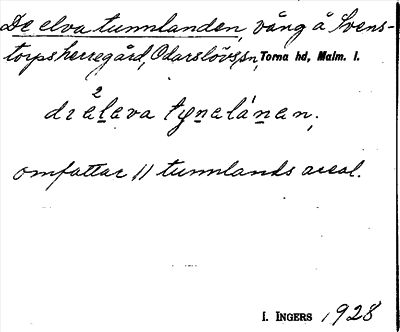 De elva tunnlanden, vång å Svens-
torps herregård, Odarslövs sn, Torna hd, Malm. l.
omfattar 11 tunnlands areal.
I. INGERS 1928